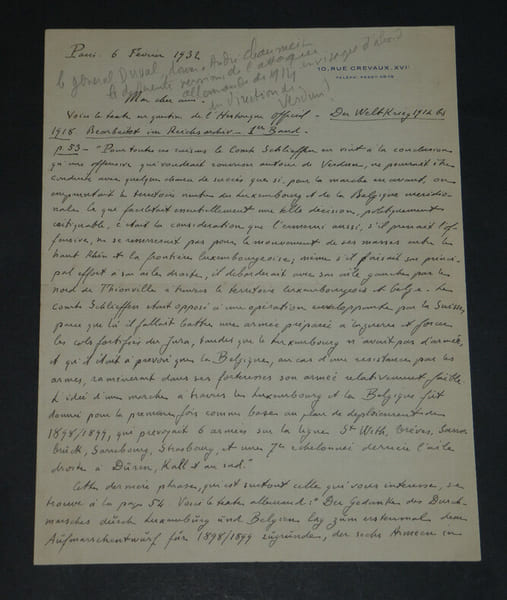 Paris 6 Février 1932
le général Duval donne à André Chaumeix
la première version de l'attaque
allemande de 1914 envisagée d'abord
en direction de
Verdun!
10, RUE CREVAUX. XVI
Mon cher ami.
Voici le texte en question de l'Historique officiel - Der Weltkrieg 1914 bis
1918 Bearbeitet im Reichsarchiv - 1er Band.
p. 53 - "Pour toutes ces raisons le Comte Schlieffen en vint à la conclusion
qu'une offensive qui voudrait tourner autour de Verdun, ne pourrait être
conduite avec quelque chance de succès que si, pour la marche en avant, on
empruntait le territoire neutre du Luxembourg et de la Belgique méridio-
nale. Ce qui facilitait essentiellement une telle décision, politiquement
critiquable, c'était la considération que l'ennemi aussi, s'il prenait l'of-
fensive, ne se resserrerait pas pour le mouvement de ses masses entre le
haut Rhin et la frontière luxembourgeoise; même s'il faisait son princi-
pal effort à son aile droite, il déborderait avec son aile gauche par le
nord de Thionville à travers le territoire luxembourgeois et belge. Le
Comte Schlieffen était opposé à une opération enveloppante par la Suisse,
parce que là il fallait battre une armée préparée à la guerre et forcer
les cols fortifiés du Jura, tandis que le Luxembourg n'avait pas d'armée,
et qu'il était à prévoir que la Belgique, au cas d'une résistance par les
armes, ramènerait dans ses forteresses son armée relativement faible.
L'idée d'une marche à travers le Luxembourg et la Belgique fut
donnée pour la première fois comme base au plan de déploiement de
1898/1899, qui prévoyait 6 armées sur la ligne St With, Trèves, Sarre-
brück, Sarrebourg, Strasbourg, et une 7e échelonnée derrière l'aile
droite à Düren, Kall et au sud."
Cette dernière phrase, qui est surtout celle qui vous intéresse, se
trouve à la page 54. Voici le texte allemand: "Der Gedanke des Durch-
marsches durch Luxemburg und Belgien lag zum erstenmal dem
Aufmarschentwurf für 1898/1899 zugrunde, der sechs Armeen in